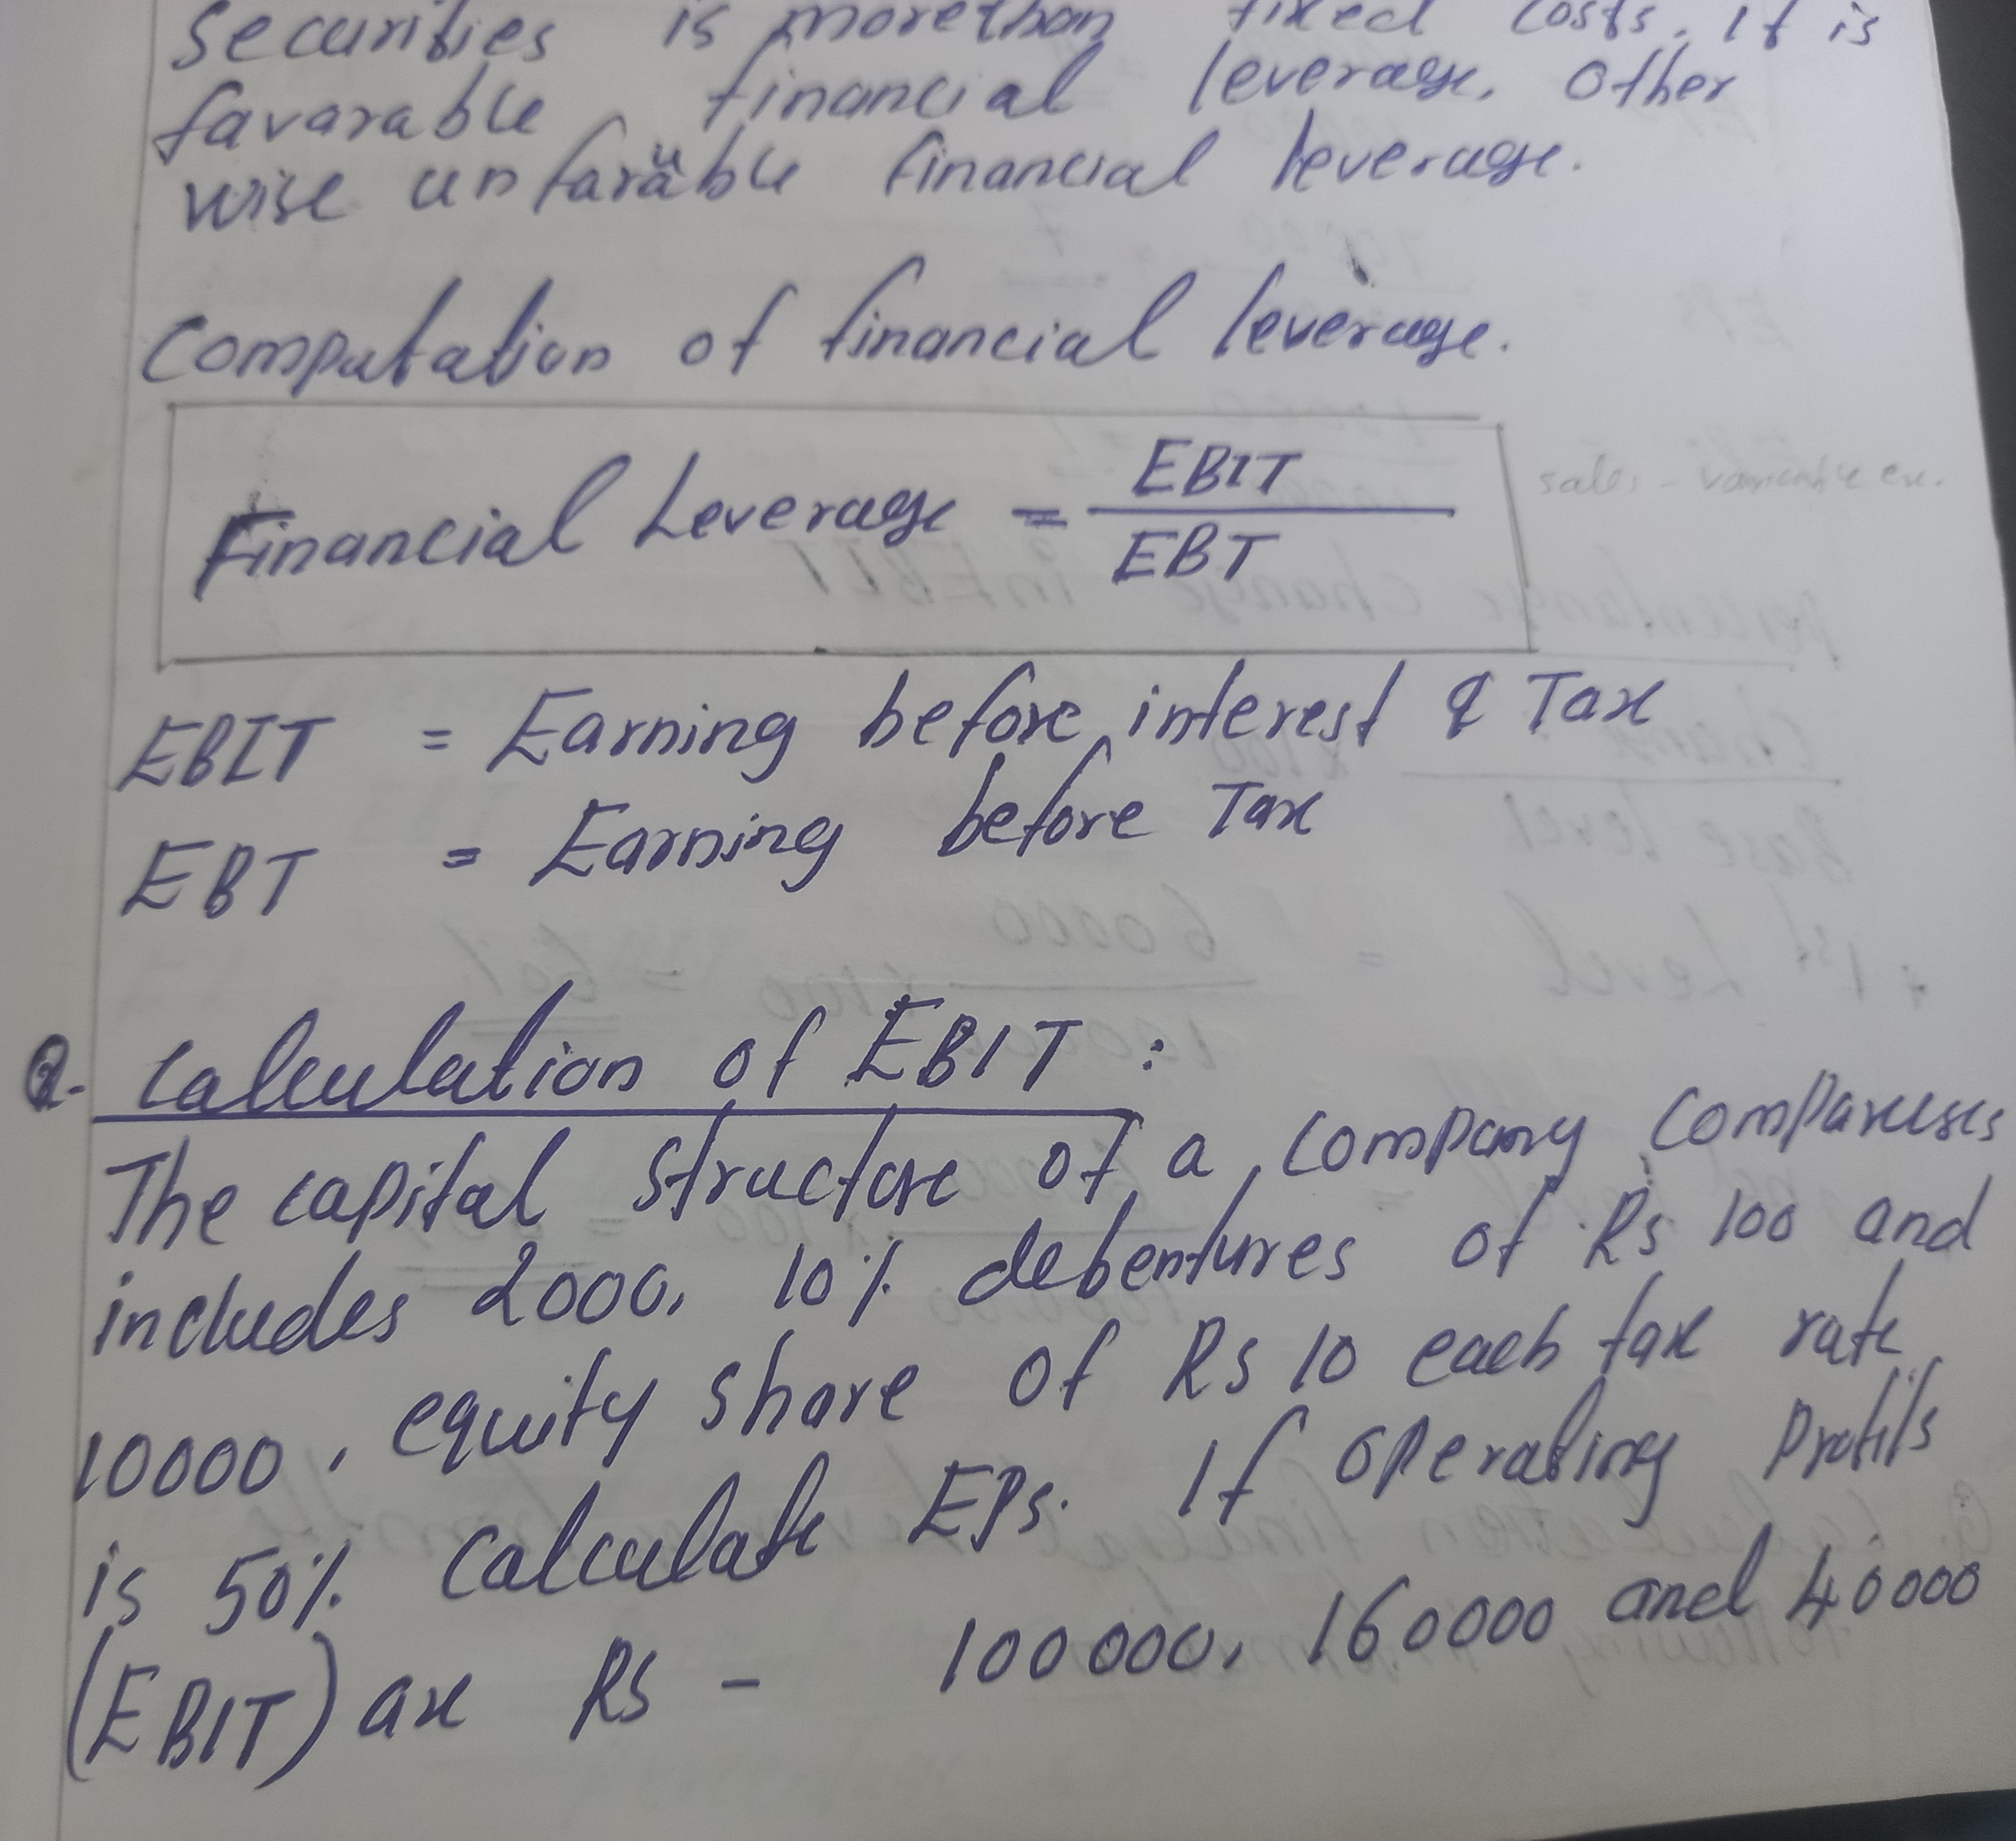 Securities is morethan fixed costs. If is
favarable financial leverage. Other
wise unfarable financial leverage.
Computation of financial leverage.
Financial Leverage = EBIT
EBT
sales - variable ex.
EBIT = Earning before interest & Tax
EBT = Earning before Tax
Q. Calculation of EBIT :
The capital structure of a company
includes 2000, 10% debentures of Rs 100 and
10000, equity share of Rs 10 each tax rate
is 50% Calculate EPS. If operating profits
(EBIT) are RS - 100000, 160000 and 40000